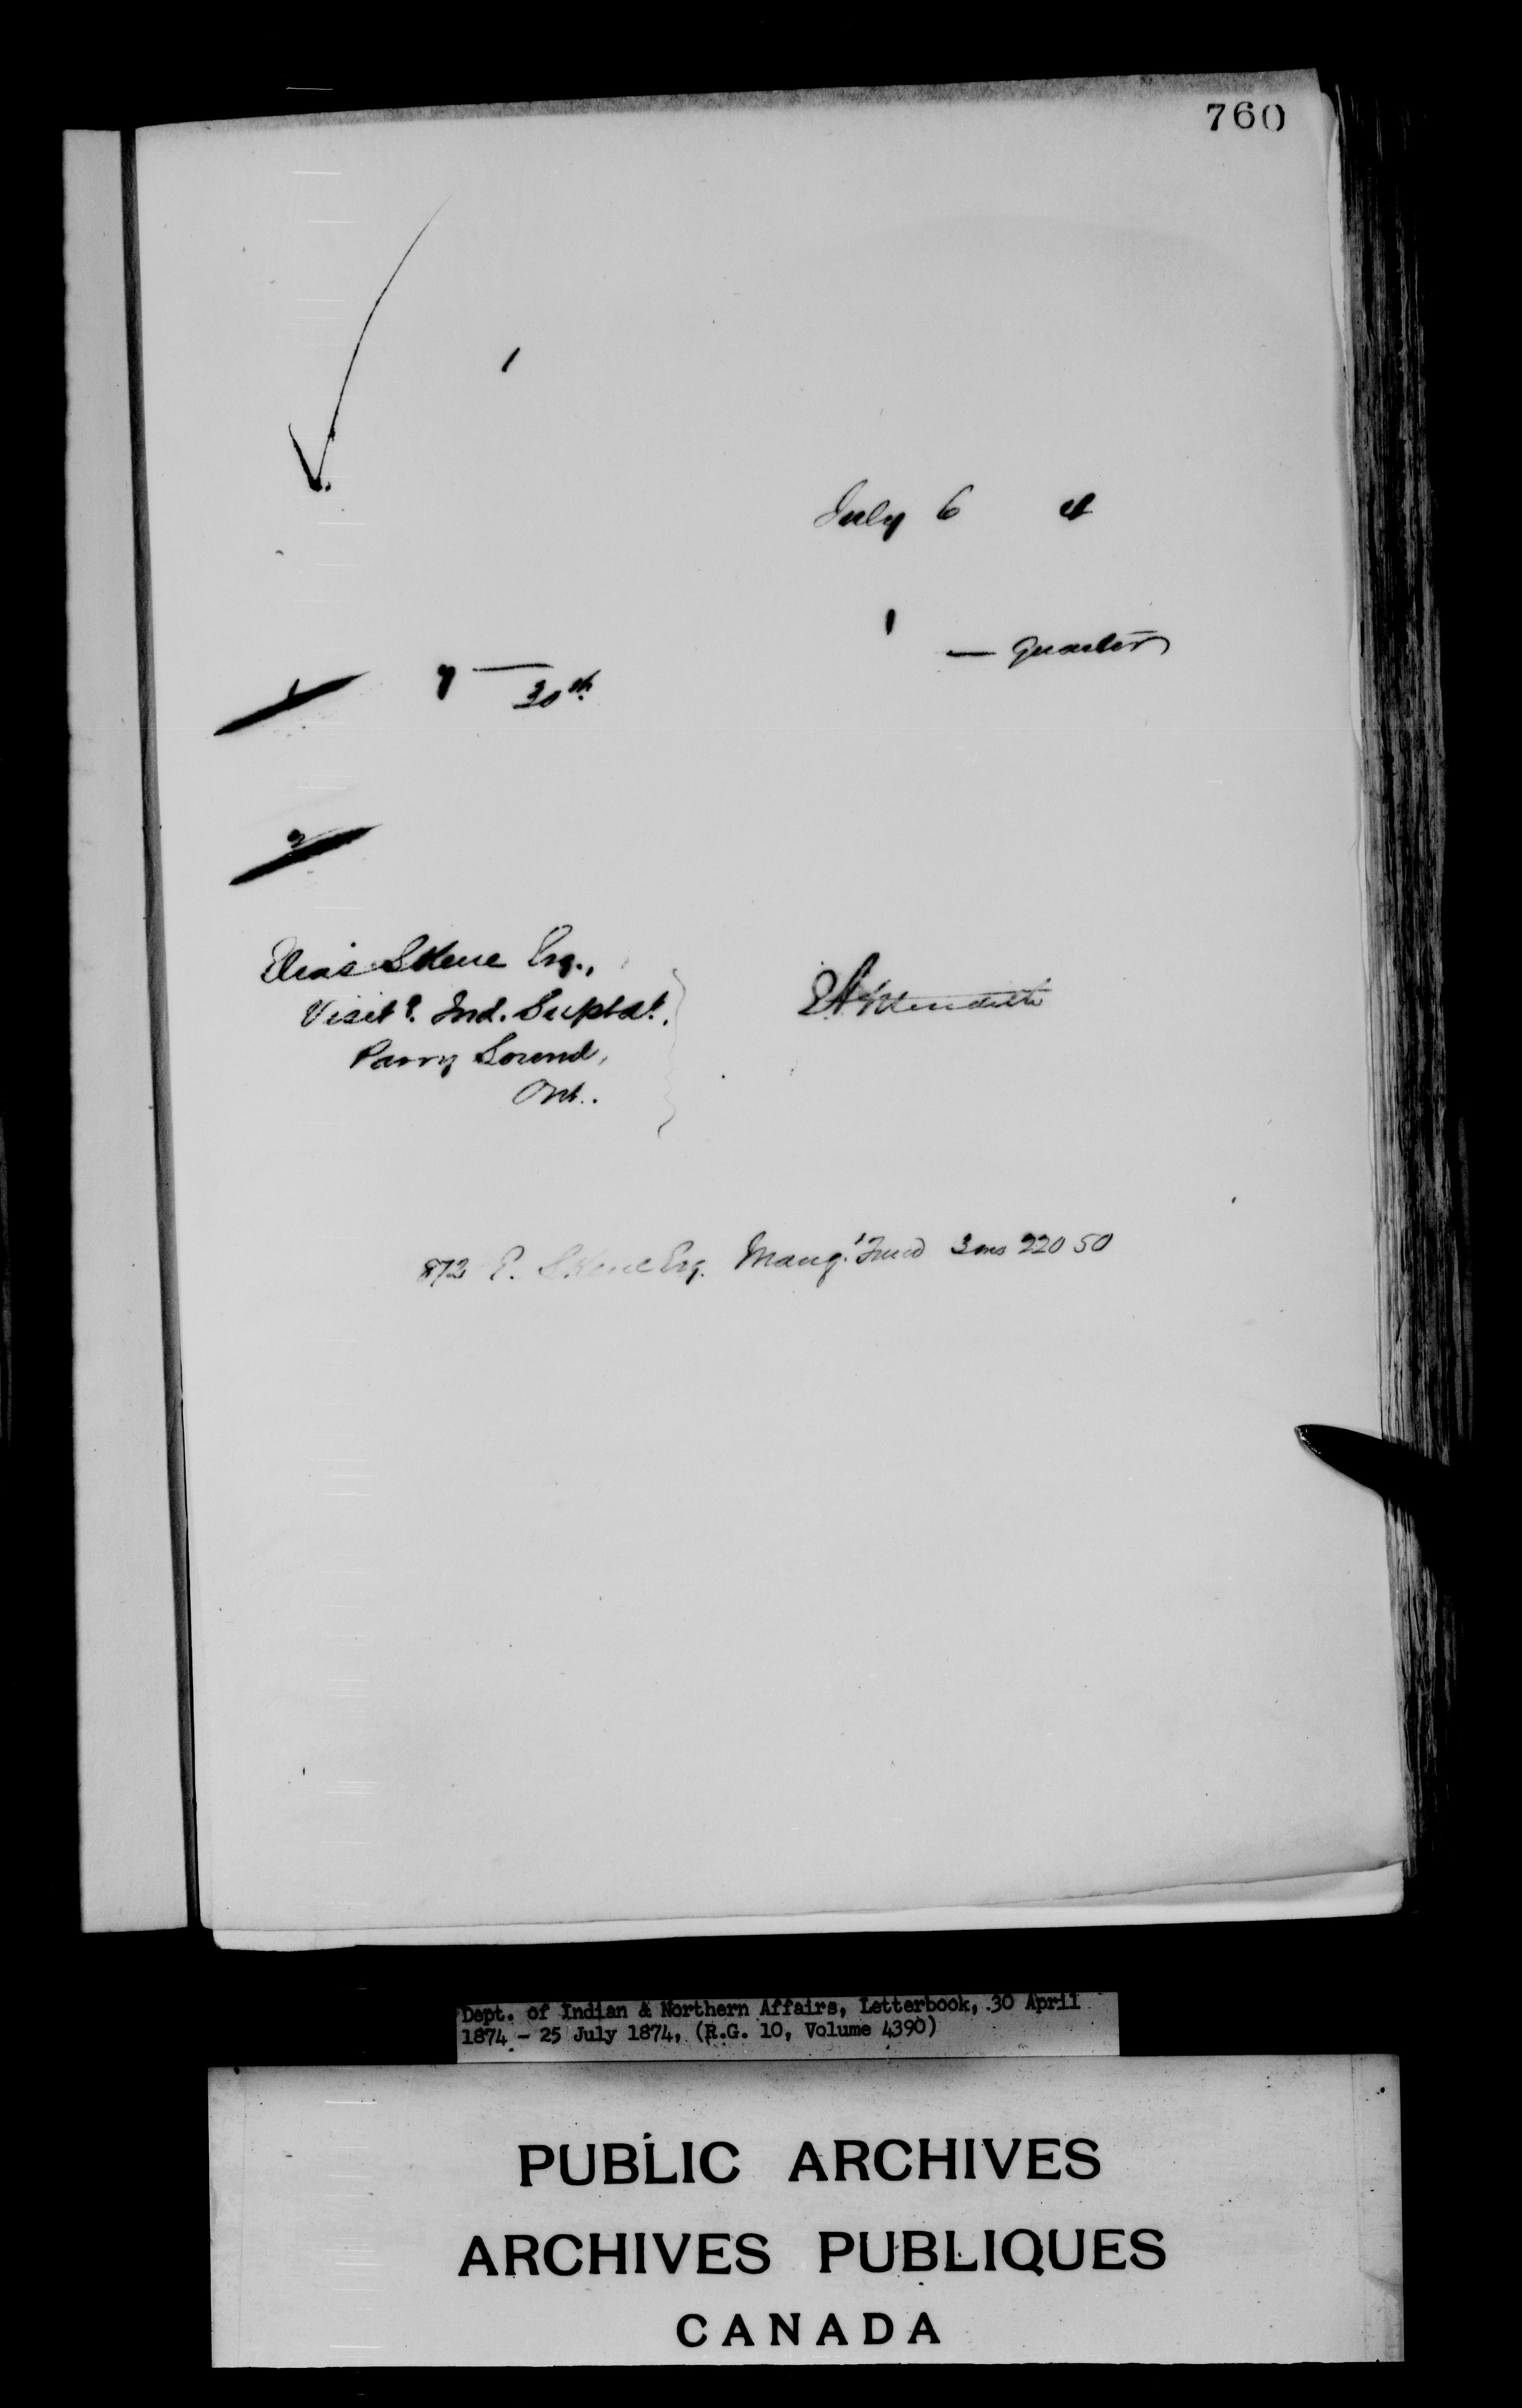 760
July 6 4
1 — quarter
1 30th
2
Elias Skene Esq.,
Visitg. Ind. Suptdt.
Parry Sound,
Ont.
EA Meredith
872 E. Skene Esq. Mang. Fund 3 ms 220 50
Dept. of Indian & Northern Affairs, Letterbook, 30 April
1874 - 25 July 1874, (R.G. 10, Volume 4390)
PUBLIC ARCHIVES
ARCHIVES PUBLIQUES
CANADA